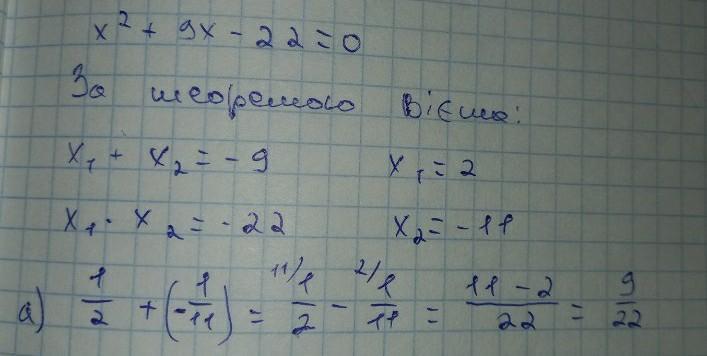 x² + 9x - 22 = 0
За теоремою Вієта:
x₁ + x₂ = -9 x₁ = 2
x₁ · x₂ = -22 x₂ = -11
а) 1/2 + (-1/11) = ¹¹⁾1/2 - ²⁾1/11 = (11 - 2)/22 = 9/22